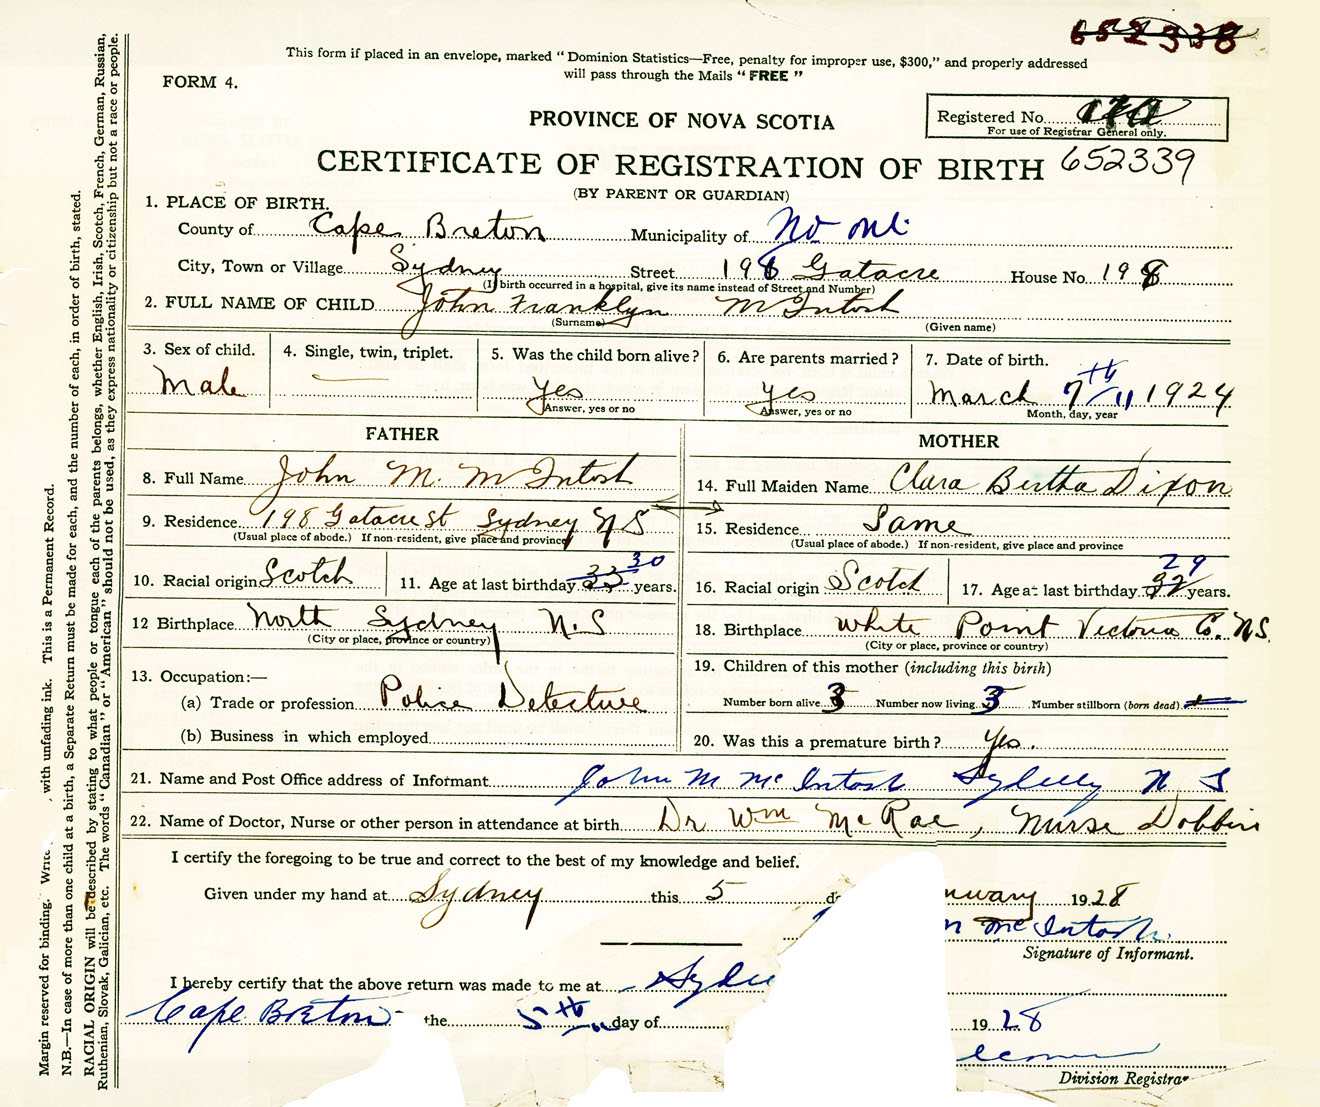 652338
This form if placed in an envelope, marked “ Dominion Statistics—Free, penalty for improper use, $300,” and properly addressed
will pass through the Mails “ FREE ”
FORM 4.
PROVINCE OF NOVA SCOTIA
Registered No.
For use of Registrar General only.
CERTIFICATE OF REGISTRATION OF BIRTH 652339
(BY PARENT OR GUARDIAN)
1. PLACE OF BIRTH.
County of Cape Breton Municipality of
City, Town or Village Sydney Street 198 Gatacre House No. 198
(If birth occurred in a hospital, give its name instead of Street and Number)
2. FULL NAME OF CHILD John Franklyn McIntosh
(Surname) (Given name)
3. Sex of child. 4. Single, twin, triplet. 5. Was the child born alive? 6. Are parents married? 7. Date of birth.
Male — yes yes March 7th 1924
Answer, yes or no Answer, yes or no Month, day, year
FATHER MOTHER
8. Full Name John M. McIntosh 14. Full Maiden Name Clara Bertha Dixon
9. Residence 198 Gatacre St Sydney N S 15. Residence Same
(Usual place of abode.) If non-resident, give place and province (Usual place of abode.) If non-resident, give place and province
10. Racial origin Scotch 11. Age at last birthday 33 30 years. 16. Racial origin Scotch 17. Age at last birthday 32 29 years.
12 Birthplace North Sydney N.S 18. Birthplace White Point Victoria Co. N.S.
(City or place, province or country) (City or place, province or country)
13. Occupation:— 19. Children of this mother (including this birth)
(a) Trade or profession Police Detective Number born alive 3 Number now living 3 Number stillborn (born dead)
(b) Business in which employed 20. Was this a premature birth? Yes.
21. Name and Post Office address of Informant John M McIntosh Sydney N S
22. Name of Doctor, Nurse or other person in attendance at birth Dr Wm McRae, Nurse Dobbin
I certify the foregoing to be true and correct to the best of my knowledge and belief.
Given under my hand at Sydney this 5 d nuary 1928
m McIntosh
Signature of Informant.
I hereby certify that the above return was made to me at Sydne
Cape Breton the 5th day of 1928
Division Registrar
Margin reserved for binding. Write with unfading ink. This is a Permanent Record.
N.B.—In case of more than one child at a birth, a Separate Return must be made for each, and the number of each, in order of birth, stated.
RACIAL ORIGIN will be described by stating to what people or tongue each of the parents belongs, whether English, Irish, Scotch, French, German, Russian,
Ruthenian, Slovak, Galician, etc. The words “ Canadian ” or “ American ” should not be used, as they express nationality or citizenship but not a race or people.